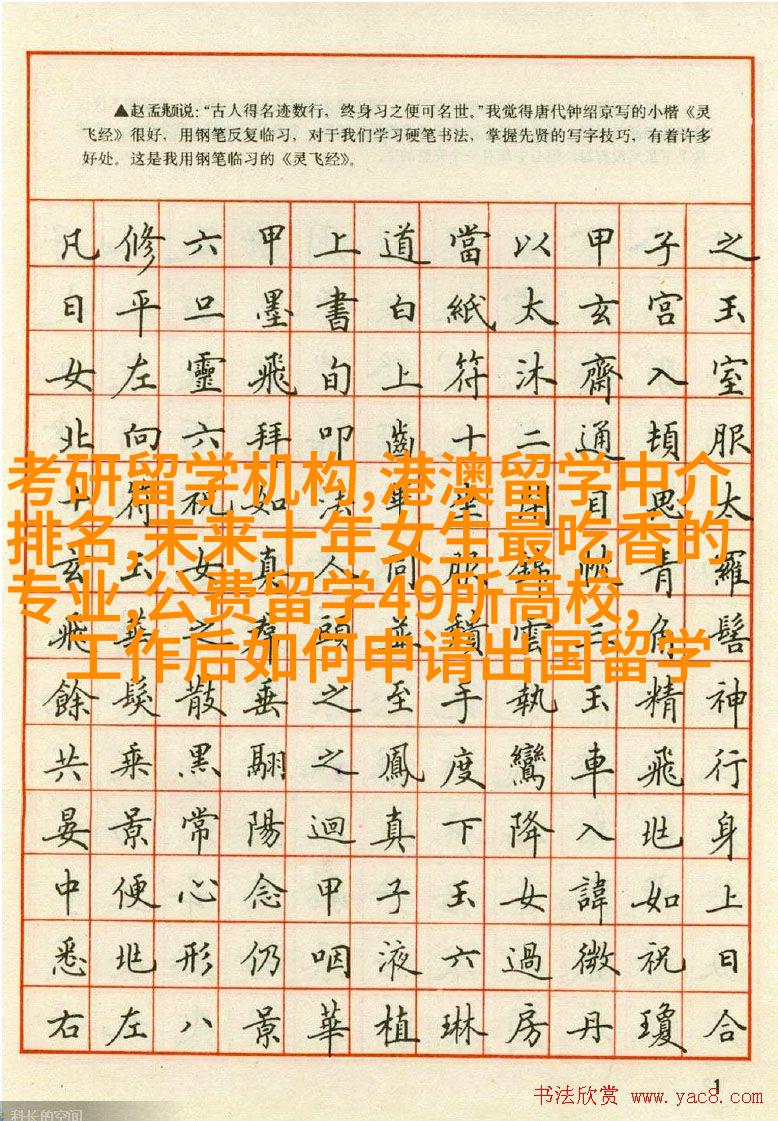 ▲赵孟頫说:“古人得名迹数行,终身习之便可名世。”我觉得唐代钟绍京写的小楷《灵
飞经》很好,用钢笔反复临习,对于我们学习硬笔书法,掌握先贤的写字技巧,有着许多
好处。这是我用钢笔临习的《灵飞经》。
凡修六甲上道當以甲子之
日平旦墨書白紙太玄宮玉
女左靈飛旬上符沐齋入室
北向六拜叩齒十二通頓服
十符祝如法畢坐目思太
考研留学机构,港澳留学中介
排名,未来十年女生最吃香的
专业,公费留学49所高校,
工作后如何申请出国留学
玄玉女真人同服錦帔青羅
飛華之裙頭並頹雲三角髻
餘髮散垂之至手執玉精神
共乘黑翮之鳳度鸞車飛行
晏景常陽迴真下降入此身
中便心念甲子玉女諱如上
悉此形仍咽液六過微祝曰
右左八景華植琳房丹瓊合
1
书法欣赏 www.yac8.com
科长的空间